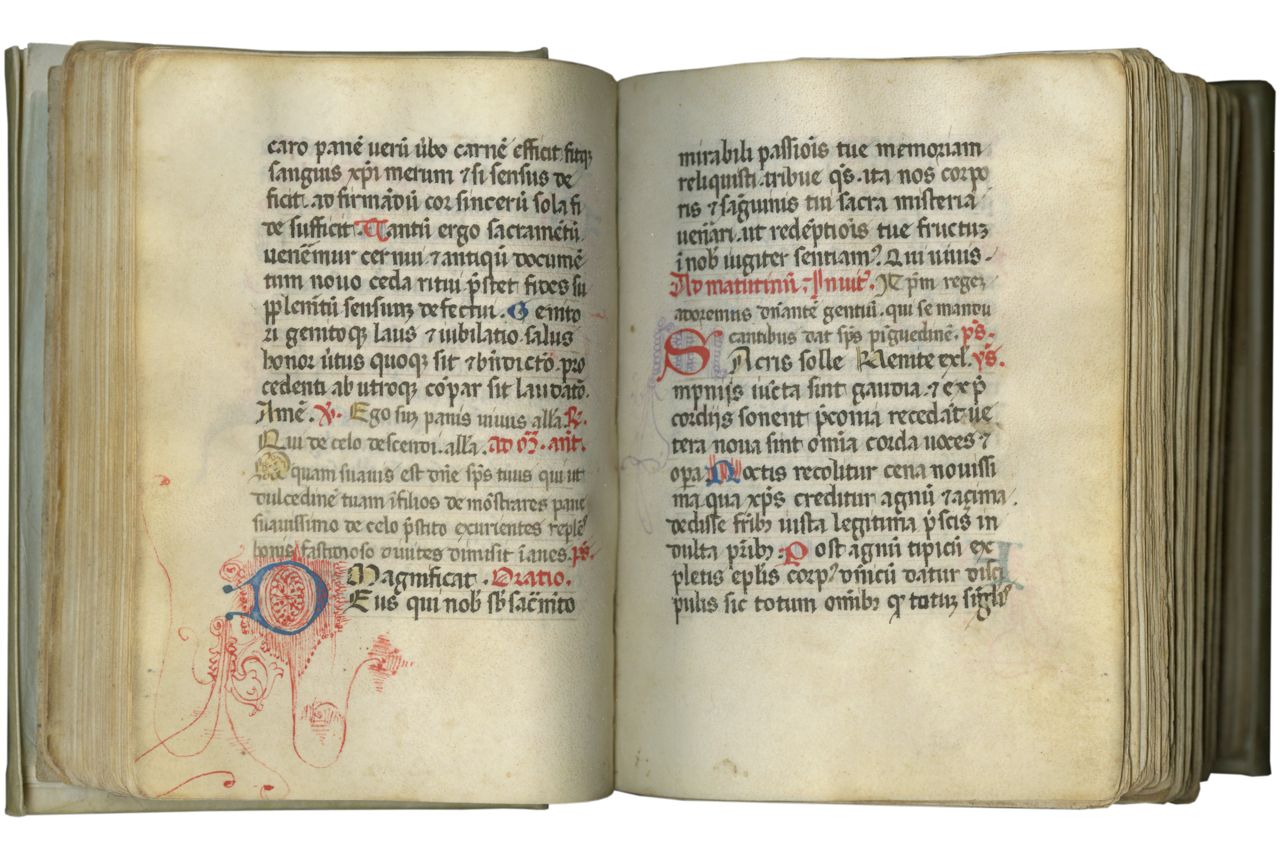 caro panē uerū ūbo carnē efficit fitqꝫ
sanguis xp̄i merum ⁊ si sensus de
ficit. ad firmādū cor sincerū sola fi
des sufficit. Tantū ergo sacramētū
uenēmur cernui ⁊ antiqū documē
tum nouo cedat ritui p̄stet fides su
pplemtū sensuuꝫ defectui. Genito
ri genitoqꝫ laus ⁊ iubilatio. salus
honor ūtus quoqꝫ sit ⁊ bn̄dictō. pro
cedenti ab utroqꝫ cōpar sit laudatō.
Amē. v̄. Ego suꝫ panis uiuus all'a. R̄.
Qui de celo descendi. all'a. ad m̄. ant̄.
O quam suauis est dn̄e sp̄s tuus qui ut
dulcedinē tuam ī filios demōstrares pane
suauissimo de celo p̄stito exurientes reples
bonis fastidioso diuites dimisit īanes. p̄s.
Magnificat. Oratio.
Deus qui nob' sb' sac̄mto
mirabili passiōis tue memoriam
reliquisti. tribue q̄s. ita nos corpo
ris ⁊ sāguinis tui sacra misteria
uen̄ari. ut redēptiōis tue fructuꝫ
ī nob' iugiter sentiam'. Qui uiuis.
Ad matutinū. Inuit'. Xp̄m regeꝫ
adoremus dn̄antē gentiū. qui se mandu
cantibus dat sp̄s pīguedinē. p̄s.
Sacris solle Uenite exl'. ȳs.
mpnijs iūcta sint gaudia. ⁊ ex p̄
cordijs sonent p̄conia recedāt ue
tera noua sint om̄ia corda uoces ⁊
opa. Noctis recolitur cena nouissi
ma. qua xp̄s creditur agnū ⁊ açima
dedisse fr̄ibꝫ iusta legitima p̄scis in
dulta pr̄ibꝫ. Post agnū tipicū ex
pletis eplis corp' dn̄icū datur disci
pulis sic totum om̄ibꝫ qꝫ totuꝫ singl'is